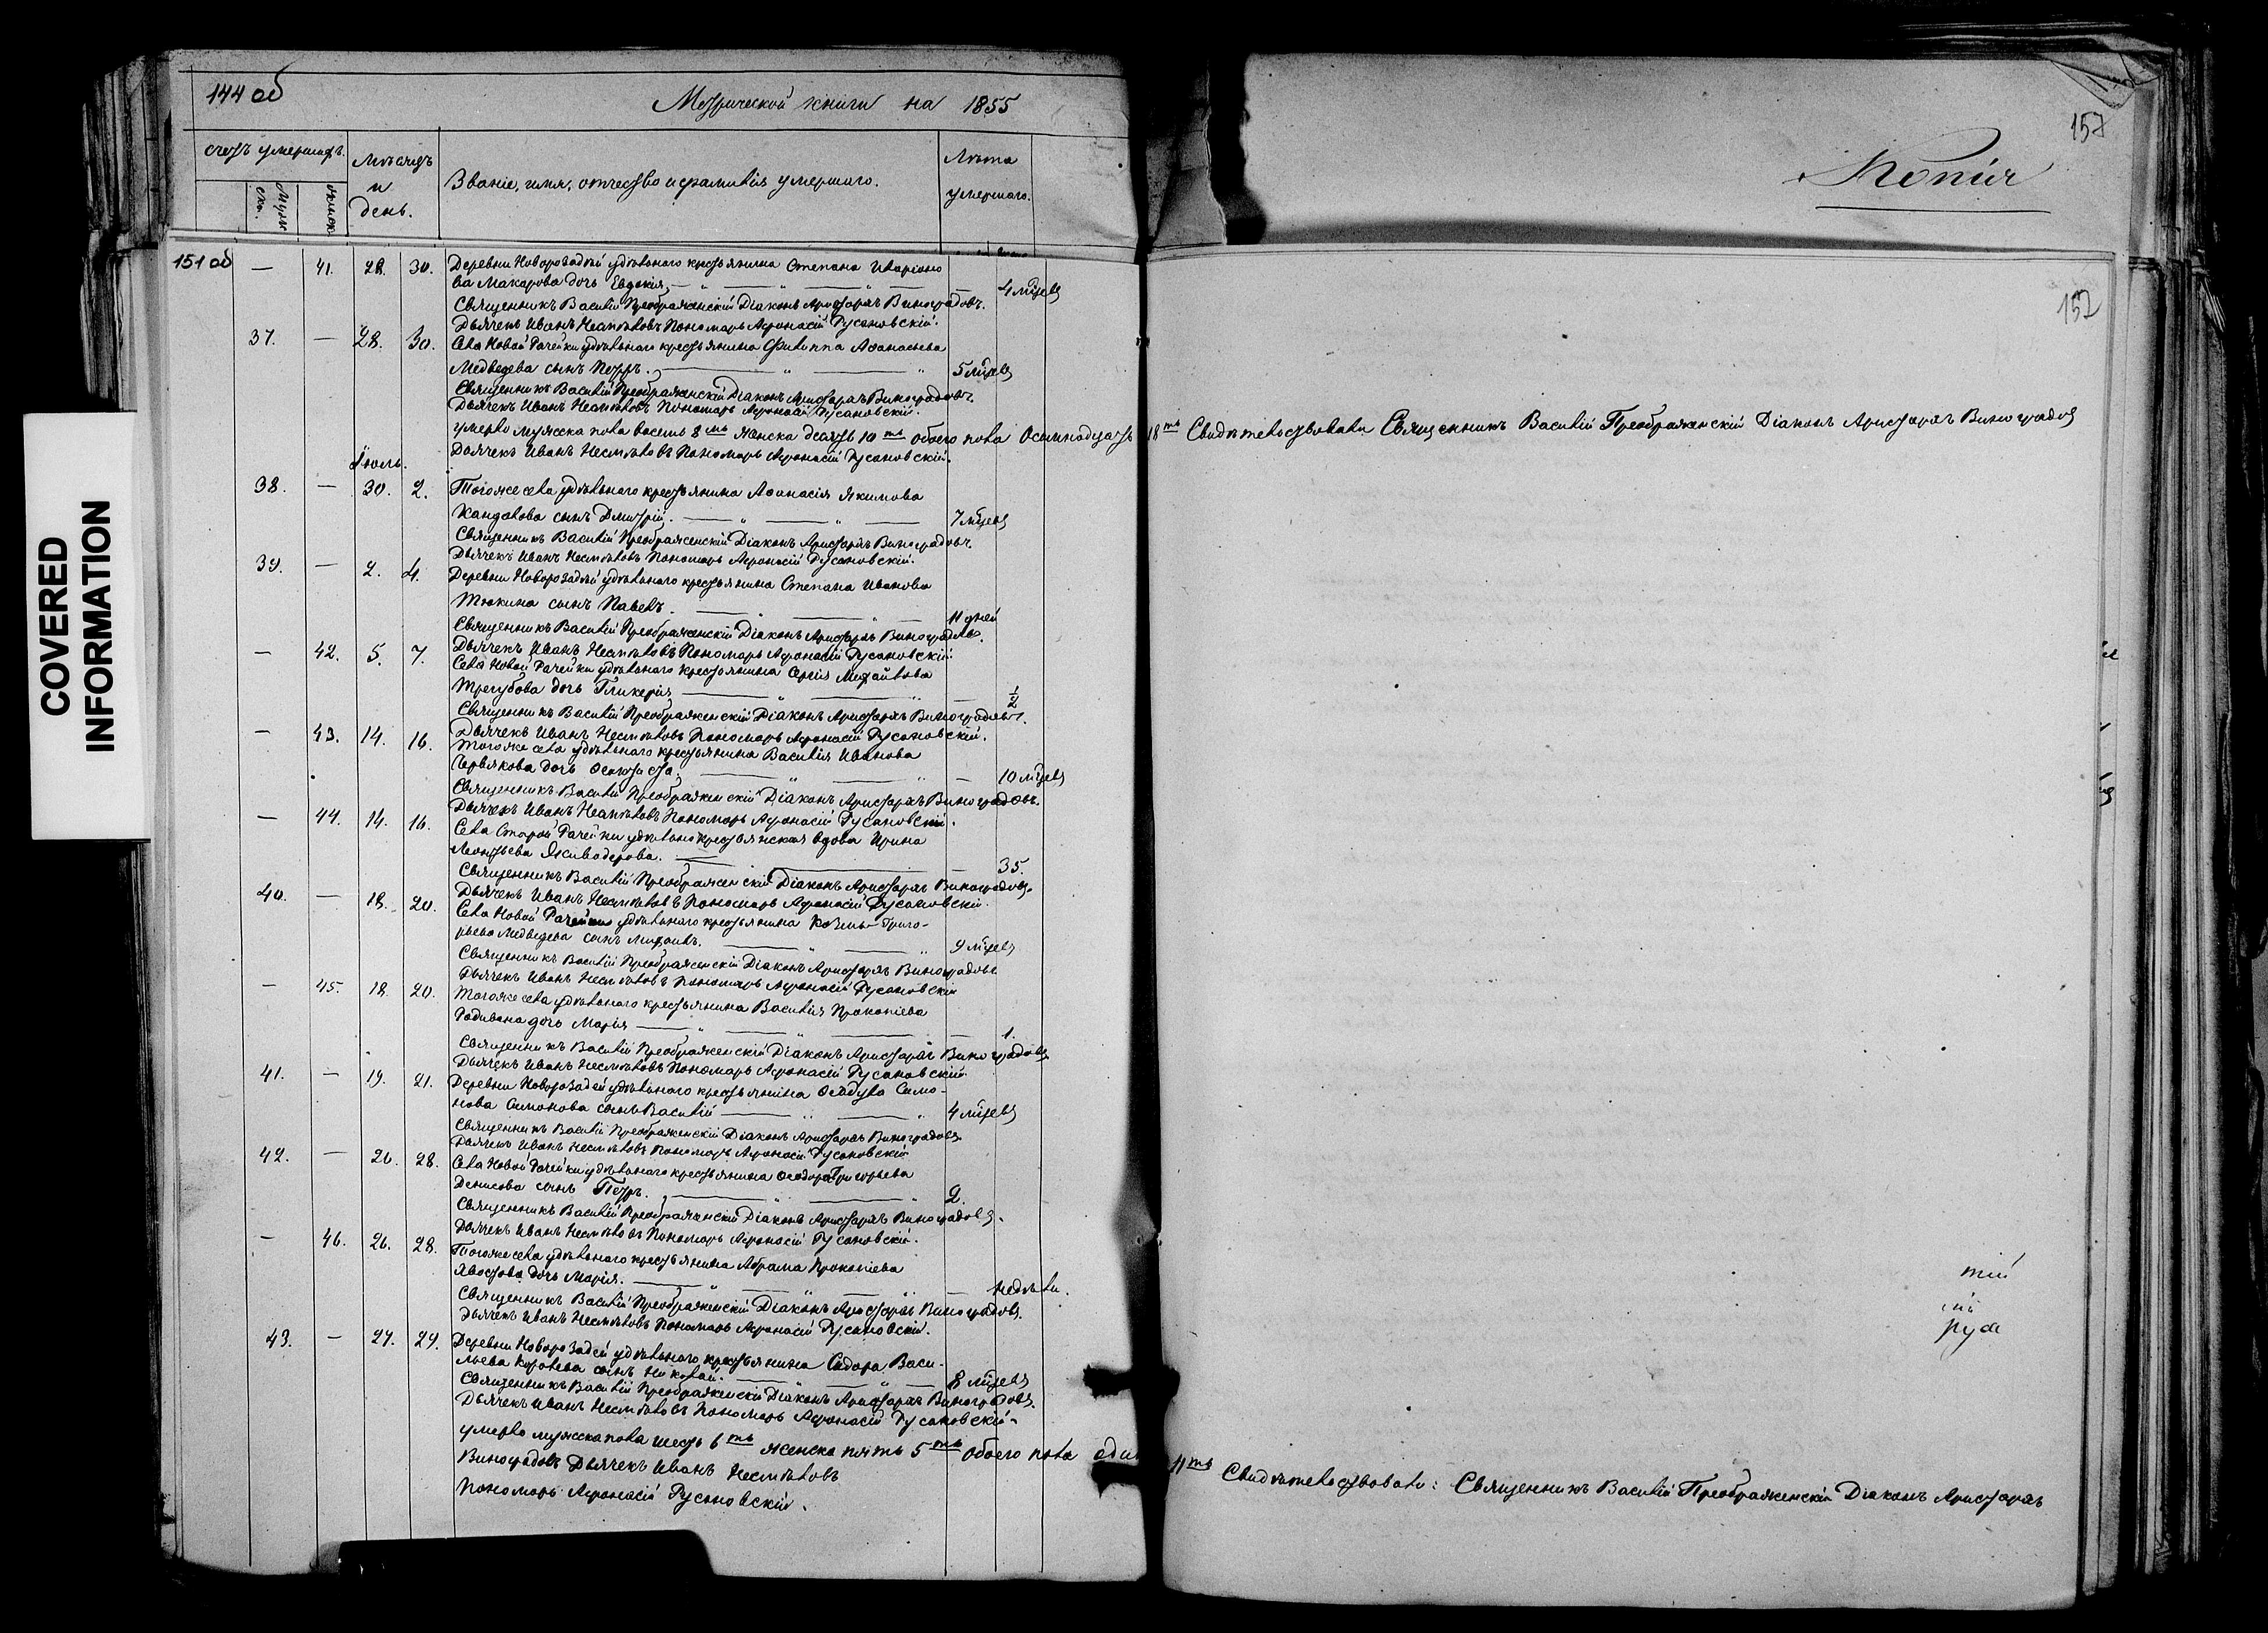 144 об
Метрической книги на 1855
157
Копія
счетъ умершихъ.
Мѣсяцъ и день.
Званіе, имя, отчество и фамилія умершаго.
Лѣта умершаго.
Мужеска.
Женск.
151 об
157
— 41. 28. 30. Деревни Новорозадѣй удѣльнаго крестьянина Степана Иларіоно
ва Макарова дочь Евдокія — 4 мѣсецъ
Священникъ Василій Преображенскій Діаконъ Аристархъ Виноградовъ.
Дьячекъ Иванъ Несмѣловъ Пономарь Афонасій Русановскій.
37. — 28. 30. Села Новой Рачейки удѣльнаго крестьянина Филиппа Аѳанасьева
Медведева сынъ Петръ. 5 мѣсецъ
Священникъ Василій Преображенскій Діаконъ Аристархъ Виноградовъ.
Дьячекъ Иванъ Несмѣловъ Пономарь Афонасій Русановскій.
умерло мужска пола восемь 8мь женска десять 10ть обоего пола осемнадцать 18ть Свидѣтельствовали Священникъ Василій Преображенскій Діаконъ Аристархъ Виноградовъ
Дьячекъ Иванъ Несмѣловъ Пономарь Афонасій Русановскій.
Іюль.
38. — 30. 2. Тогоже села удѣльнаго крестьянина Аѳанасія Якимова
Кандалова сынъ Дмитрій. 7 мѣсецъ
Священникъ Василій Преображенскій Діаконъ Аристархъ Виноградовъ.
Дьячекъ Иванъ Несмѣловъ Пономарь Афонасій Русановскій.
39. — 2. 4. Деревни Новорозадѣй удѣльнаго крестьянина Степана Иванова
Тюкина сынъ Павелъ. 11 дней
Священникъ Василій Преображенскій Діаконъ Аристархъ Виноградовъ.
Дьячекъ Иванъ Несмѣловъ Пономарь Афонасій Русановскій.
— 42. 5. 7. Села Новой Рачейки удѣльнаго крестьянина Сергія Михайлова
Трегубова дочь Гликерія — 1/2
Священникъ Василій Преображенскій Діаконъ Аристархъ Виноградовъ.
Дьячекъ Иванъ Несмѣловъ Пономарь Афонасій Русановскій.
— 43. 14. 16. Тогоже села удѣльнаго крестьянина Василія Иванова
Червякова дочь — 10 мѣсецъ
Священникъ Василій Преображенскій Діаконъ Аристархъ Виноградовъ.
Дьячекъ Иванъ Несмѣловъ Пономарь Афонасій Русановскій.
— 44. 14. 16. Села Старой Рачейки удѣльно крестьянская вдова Ирина
Леонтьева Живодерова. — 35.
Священникъ Василій Преображенскій Діаконъ Аристархъ Виноградовъ.
Дьячекъ Иванъ Несмѣловъ Пономарь Афонасій Русановскій.
40. — 18. 20. Села Новой Рачейки удѣльнаго крестьянина Козьмы Григо-
рьева Медведева сынъ Михаилъ. 9 мѣсецъ
Священникъ Василій Преображенскій Діаконъ Аристархъ Виноградовъ
Дьячекъ Иванъ Несмѣловъ Пономарь Афонасій Русановскій
— 45. 18. 20. Тогоже села удѣльнаго крестьянина Василія Прокопіева
Радивана дочь Марія — 1.
Священникъ Василій Преображенскій Діаконъ Аристархъ Виноградовъ.
Дьячекъ Иванъ Несмѣловъ Пономарь Афонасій Русановскій
41. — 19. 21. Деревни Новорозадей удѣльнаго крестьянина Ѳеодула Симо-
нова Симонова сынъ Василій 4 мѣсецъ
Священникъ Василій Преображенскій Діаконъ Аристархъ Виноградовъ.
Дьячекъ Иванъ Несмѣловъ Пономарь Афонасій Русановскій
42. — 26. 28. Села Новой Рачейки удѣльнаго крестьянина Ѳеодора Григорьева
Денисова сынъ Петръ. 2.
Священникъ Василій Преображенскій Діаконъ Аристархъ Виноградовъ.
Дьячекъ Иванъ Несмѣловъ Пономарь Афонасій Русановскій.
— 46. 26. 28. Тогоже села удѣльнаго крестьянина Абрама Прокопіева
Хвостова дочь Марія. — недѣли.
Священникъ Василій Преображенскій Діаконъ Аристархъ Виноградовъ.
Дьячекъ Иванъ Несмѣловъ Пономарь Афонасій Русановскій.
43. — 27. 29. Деревни Новорозадей удѣльнаго крестьянина Сидора Васи-
льева Королева сынъ Николай. 8 мѣсецъ
Священникъ Василій Преображенскій Діаконъ Аристархъ Виноградовъ.
Дьячекъ Иванъ Несмѣловъ Пономарь Афонасій Русановскій.
умерло мужска пола шесть 6ть женска пять 5ть обоего пола один 11ть Свидѣтельствовали: Священникъ Василій Преображенскій Діаконъ Аристархъ
Виноградовъ Дьячекъ Иванъ Несмѣловъ
Пономарь Афонасій Русановскій.
COVERED
INFORMATION